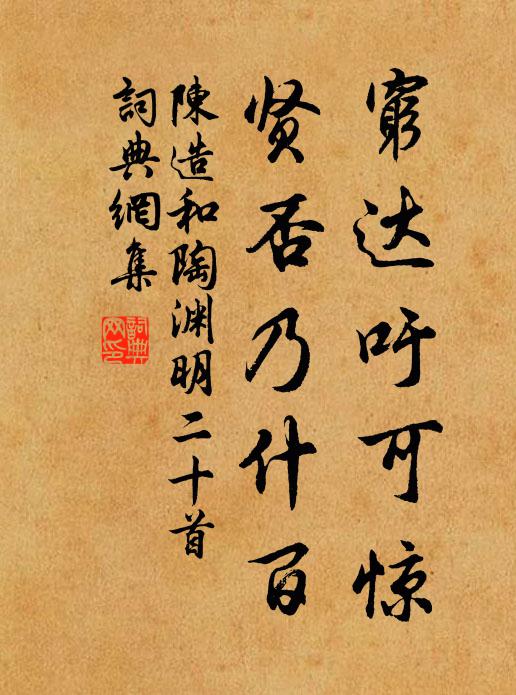 窮达吁可惊
贤否乃什百
陳造和陶渊明二十首
詞典網集
詞典
网印